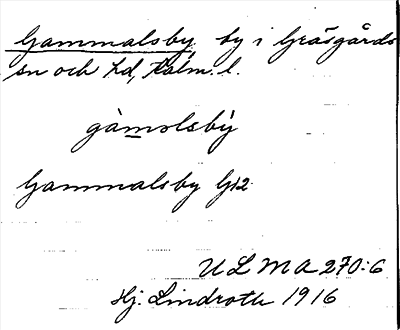 Gammalsby, by i Gräsgårds
sn och hd, Kalm. l.
gàmolsbỳ
Gammalsby G12
ULMA 270:6
Hj. Lindroth 1916